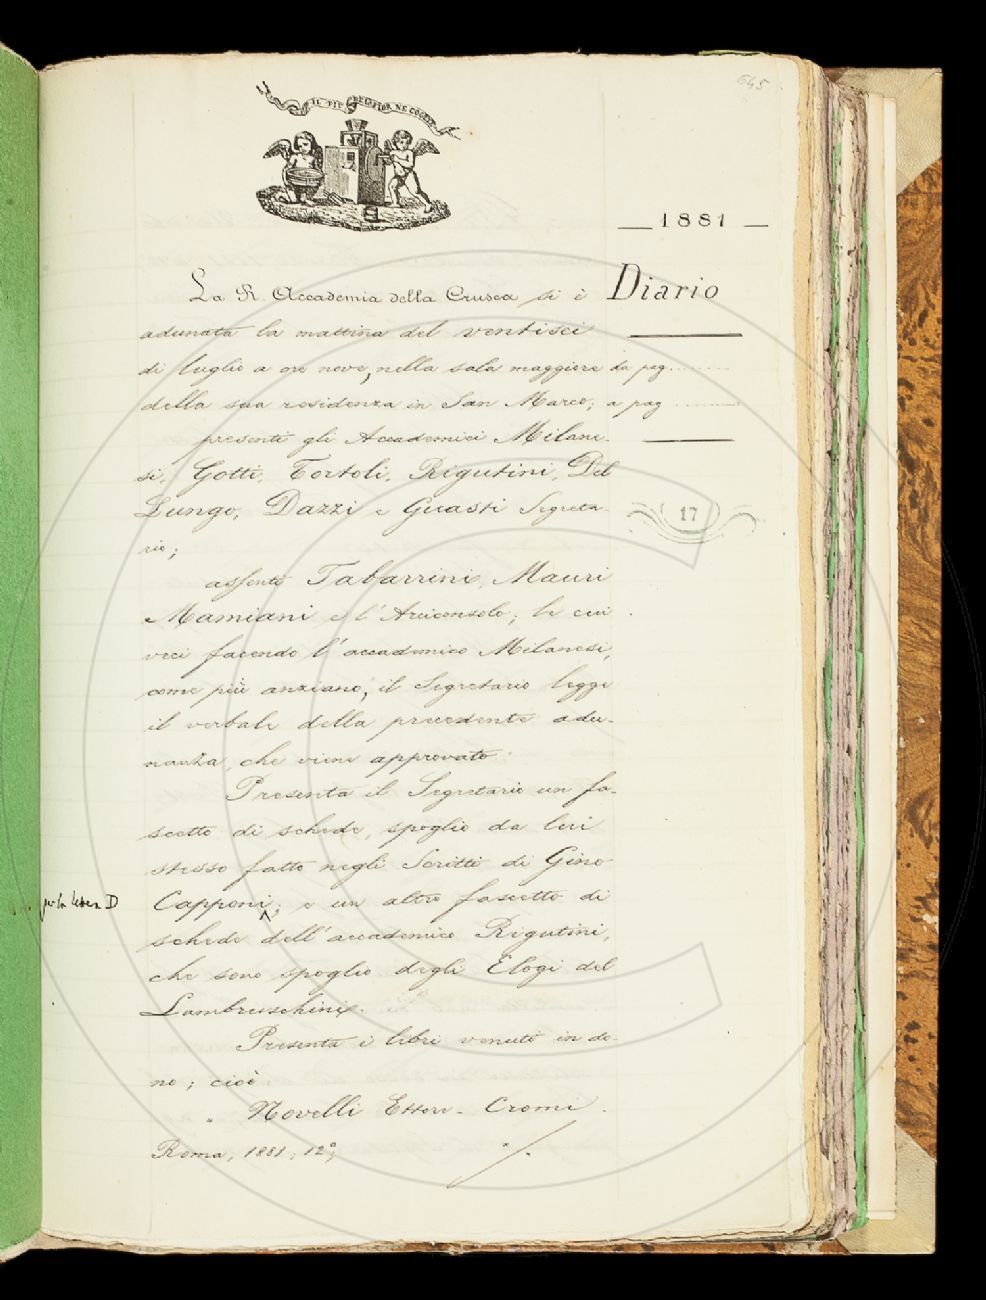 645
IL PIU BEL FIOR NE COGLIE
1881
Diario
La R. Accademia della Crusca si è
adunata la mattina del ventisei
di luglio a ore nove, nella sala maggiore
della sua residenza in San Marco;
da pag.
a pag
presenti gli Accademici Milane-
si, Gotti, Tortoli, Rigutini, Del
Lungo, Dazzi e Guasti Segreta-
rio;
17
assenti Tabarrini, Mauri
Mamiani e l'Arciconsolo; le cui
veci facendo l'accademico Milanesi,
come più anziano, il Segretario legge
il verbale della precedente adu-
nanza, che viene approvato.
Presenta il Segretario un fa-
scetto di schede, spoglio da lui
stesso fatto negli Scritti di Gino
Capponi; e un altro fascetto di
per la lettera D
schede dell'accademico Rigutini,
che sono spoglio degli Elogi del
Lambruschini.
Presenta i libri venuti in do-
no; cioè
Novelli Ettore - Cromi.
Roma, 1881, 12°;